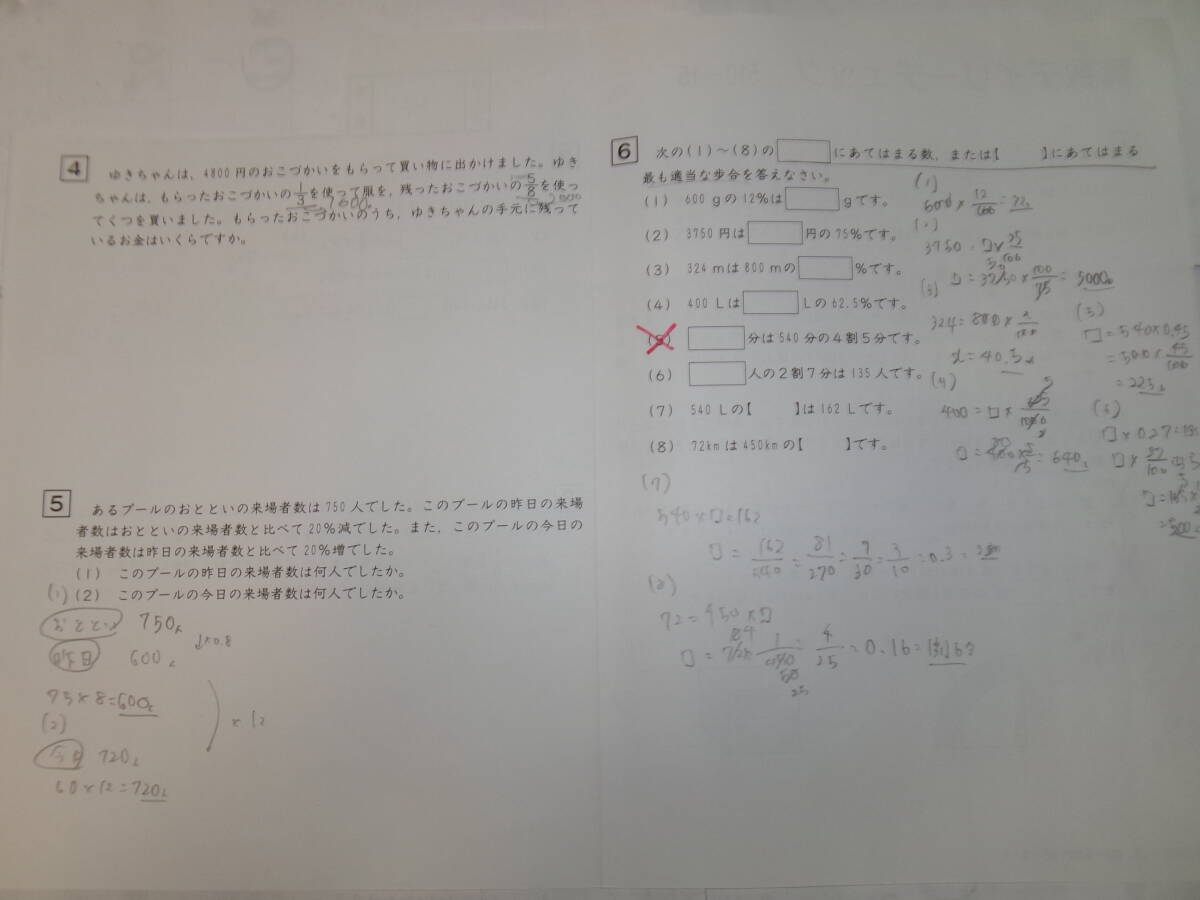 4
ゆきちゃんは，4800円のおこづかいをもらって買い物に出かけました。ゆき
ちゃんは，もらったおこづかいの1/3を使って服を，残ったおこづかいの5/8を使っ
てくつを買いました。もらったおこづかいのうち，ゆきちゃんの手元に残って
いるお金はいくらですか。
1600
5
あるプールのおとといの来場者数は750人でした。このプールの昨日の来場
者数はおとといの来場者数と比べて20%減でした。また，このプールの今日の
来場者数は昨日の来場者数と比べて20%増でした。
(1) このプールの昨日の来場者数は何人でしたか。
(2) このプールの今日の来場者数は何人でしたか。
(1)
おととい 750人
×0.8
昨日 600人
75×8=600人
×1.2
(2)
今日 720人
60×12=720人
6
次の(1)～(8)の□にあてはまる数，または【 】にあてはまる
最も適当な歩合を答えなさい。
(1) 600gの12%は□gです。
(2) 3750円は□円の75%です。
(3) 324mは800mの□%です。
(4) 400Lは□Lの62.5%です。
(5) □分は540分の4割5分です。
(6) □人の2割7分は135人です。
(7) 540Lの【 】は162Lです。
(8) 72kmは450kmの【 】です。
(1)
600×12/100=72
(2)
(3)
324=800×x/100
x=40.5
(4)
(5)
□=540×0.45
(6)
(7)
540×□=162
81/270=9/30=3/10=0.3
(8)
72=450×□
4/25=0.16=1割6分